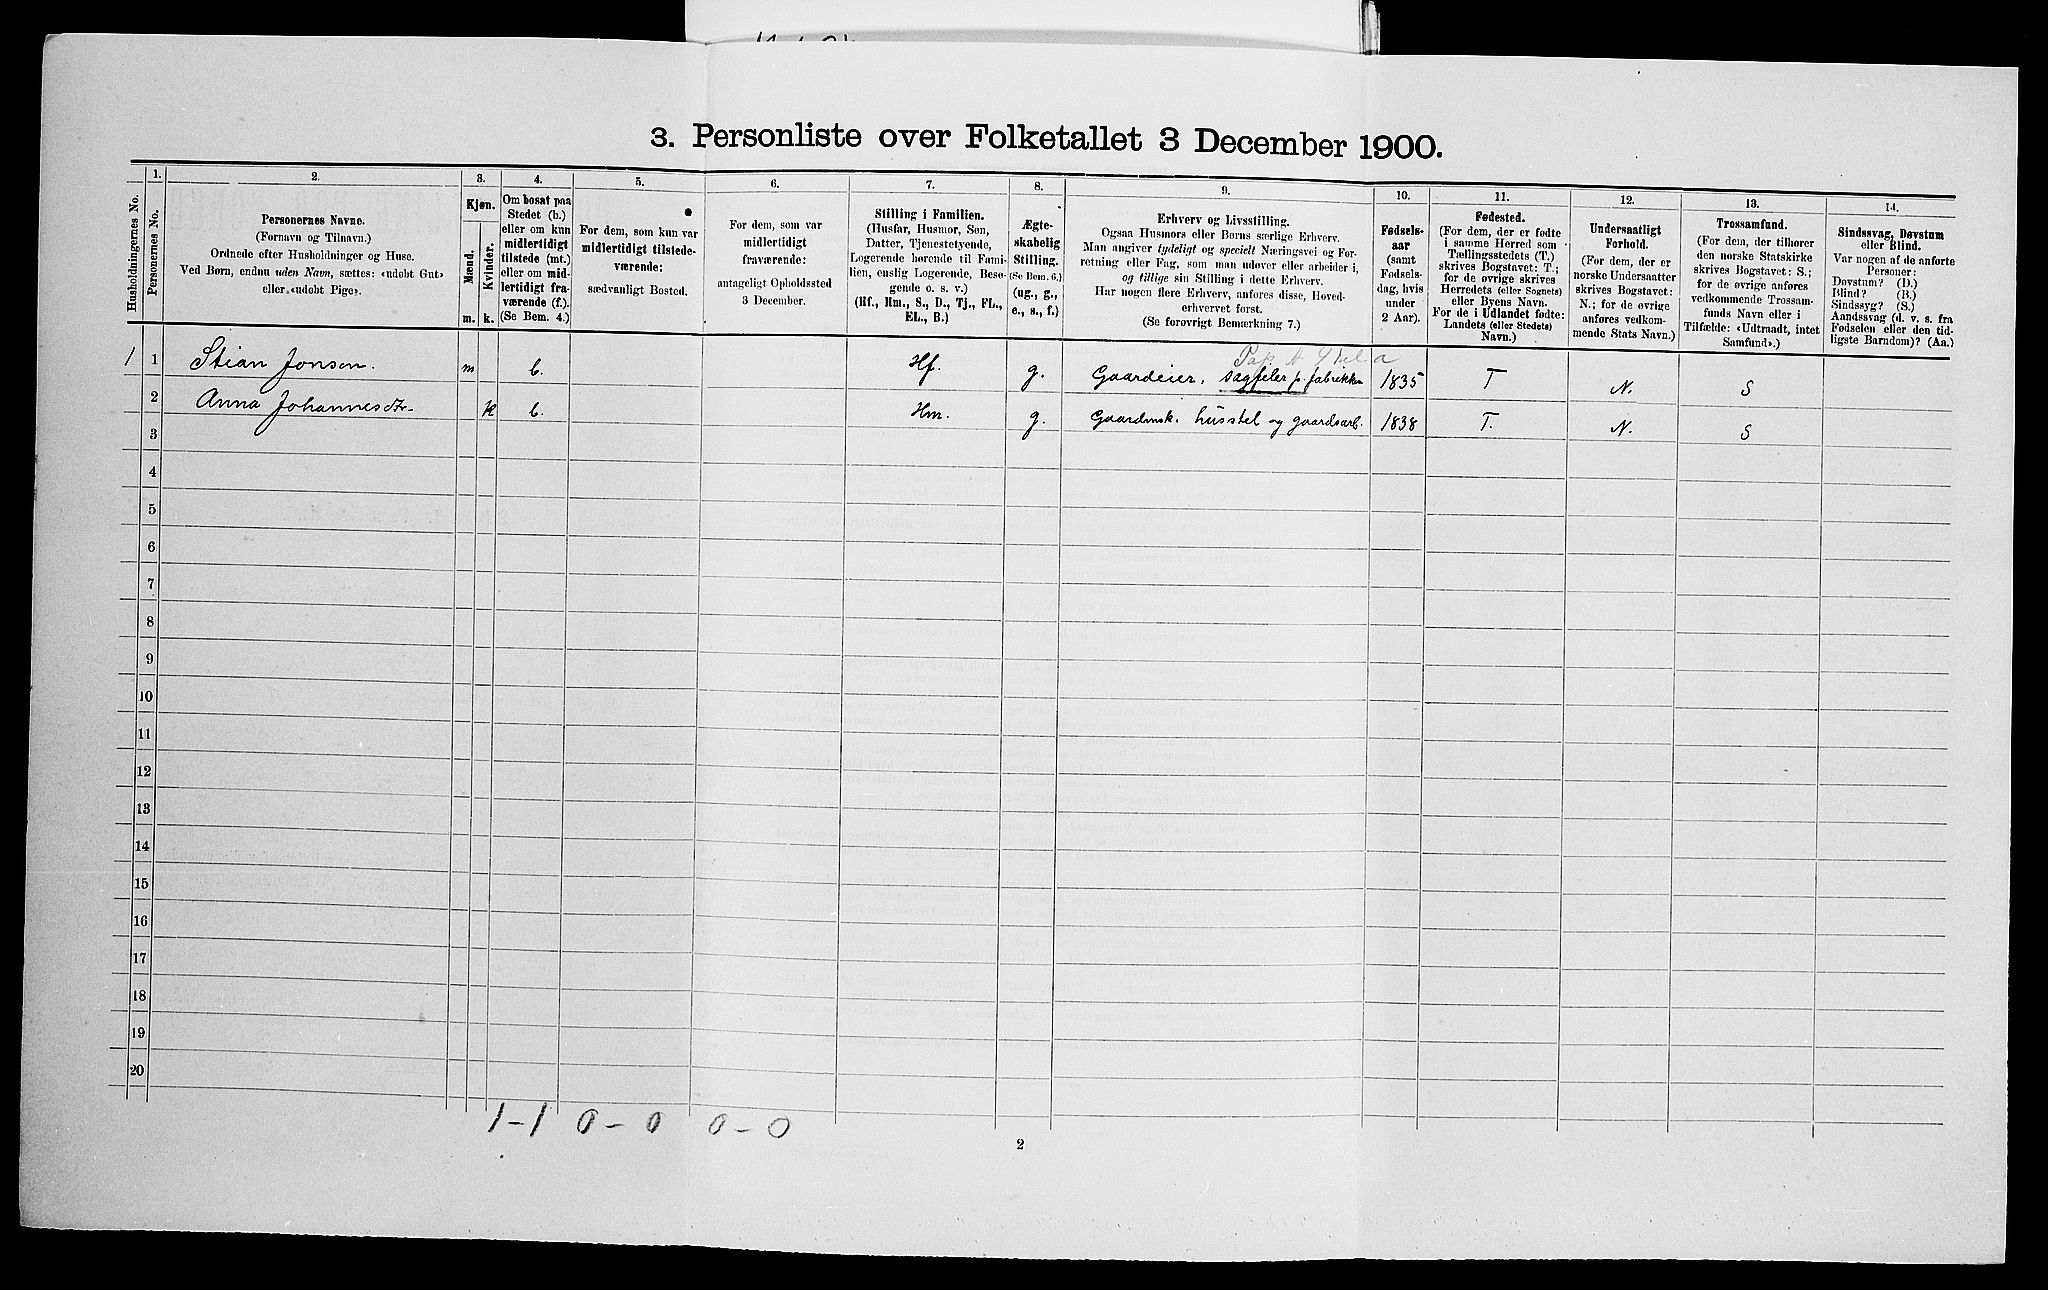 3. Personliste over Folketallet 3 December 1900.
Husholdningernes No.
1.
Personernes No.
2.
Personernes Navne.
(Fornavn og Tilnavn.)
Ordnede efter Husholdninger og Huse.
Ved Børn, endnu uden Navn, sættes: «udøbt Gut»
eller «udøbt Pige».
3.
Kjøn.
Mænd.
Kvinder.
m.
k.
4.
Om bosat paa
Stedet (b.)
eller om kun
midlertidigt
tilstede (mt.)
eller om mid-
lertidigt fra-
værende (f.).
(Se Bem. 4.)
5.
For dem, som kun var
midlertidigt tilstede-
værende:
sædvanligt Bosted.
6.
For dem, som var
midlertidigt
fraværende:
antageligt Opholdssted
3 December.
7.
Stilling i Familien.
(Husfar, Husmor, Søn,
Datter, Tjenestetyende,
Logerende hørende til Fami-
lien, enslig Logerende, Besø-
gende o. s. v.)
(Hf., Hm., S., D., Tj., FL.,
EL., B.)
8.
Ægte-
skabelig
Stilling.
(Se Bem. 6.)
(ug., g.,
e., s., f.)
9.
Erhverv og Livsstilling.
Ogsaa Husmors eller Børns særlige Erhverv.
Man angiver tydeligt og specielt Næringsvei og For-
retning eller Fag, som man udøver eller arbeider i,
og tillige sin Stilling i dette Erhverv.
Har nogen flere Erhverv, anføres disse, Hoved-
erhvervet først.
(Se forøvrigt Bemærkning 7.)
10.
Fødsels-
aar
(samt
Fødsels-
dag, hvis
under
2 Aar).
11.
Fødested.
(For dem, der er fødte
i samme Herred som
Tællingsstedets (T.)
skrives Bogstavet: T.;
for de øvrige skrives
Herredets (eller Sognets)
eller Byens Navn.
For de i Udlandet fødte:
Landets (eller Stedets)
Navn.)
12.
Undersaatligt
Forhold.
(For dem, der er
norske Undersaatter
skrives Bogstavet:
N.; for de øvrige
anføres vedkom-
mende Stats Navn.)
13.
Trossamfund.
(For dem, der tilhører
den norske Statskirke
skrives Bogstavet: S.;
for de øvrige anføres
vedkommende Trossam-
funds Navn eller i
Tilfælde: «Udtraadt, intet
Samfund».)
14.
Sindssvag, Døvstum
eller Blind.
Var nogen af de anførte
Personer:
Døvstum? (D.)
Blind? (B.)
Sindssyg? (S.)
Aandssvag (d. v. s. fra
Fødselen eller den tid-
ligste Barndom)? (Aa.)
1 1 Stian Jonsen. m b. Hf. g. Gaardeier, sagfiler p. fabrikken 1835 T N. S
2 Anna Johannesdtr. k b. Hm. g. Gaardmsk. husstel og gaardsarb. 1838 T. N. S
3
4
5
6
7
8
9
10
11
12
13
14
15
16
17
18
19
20
1-1 0-0 0-0
2